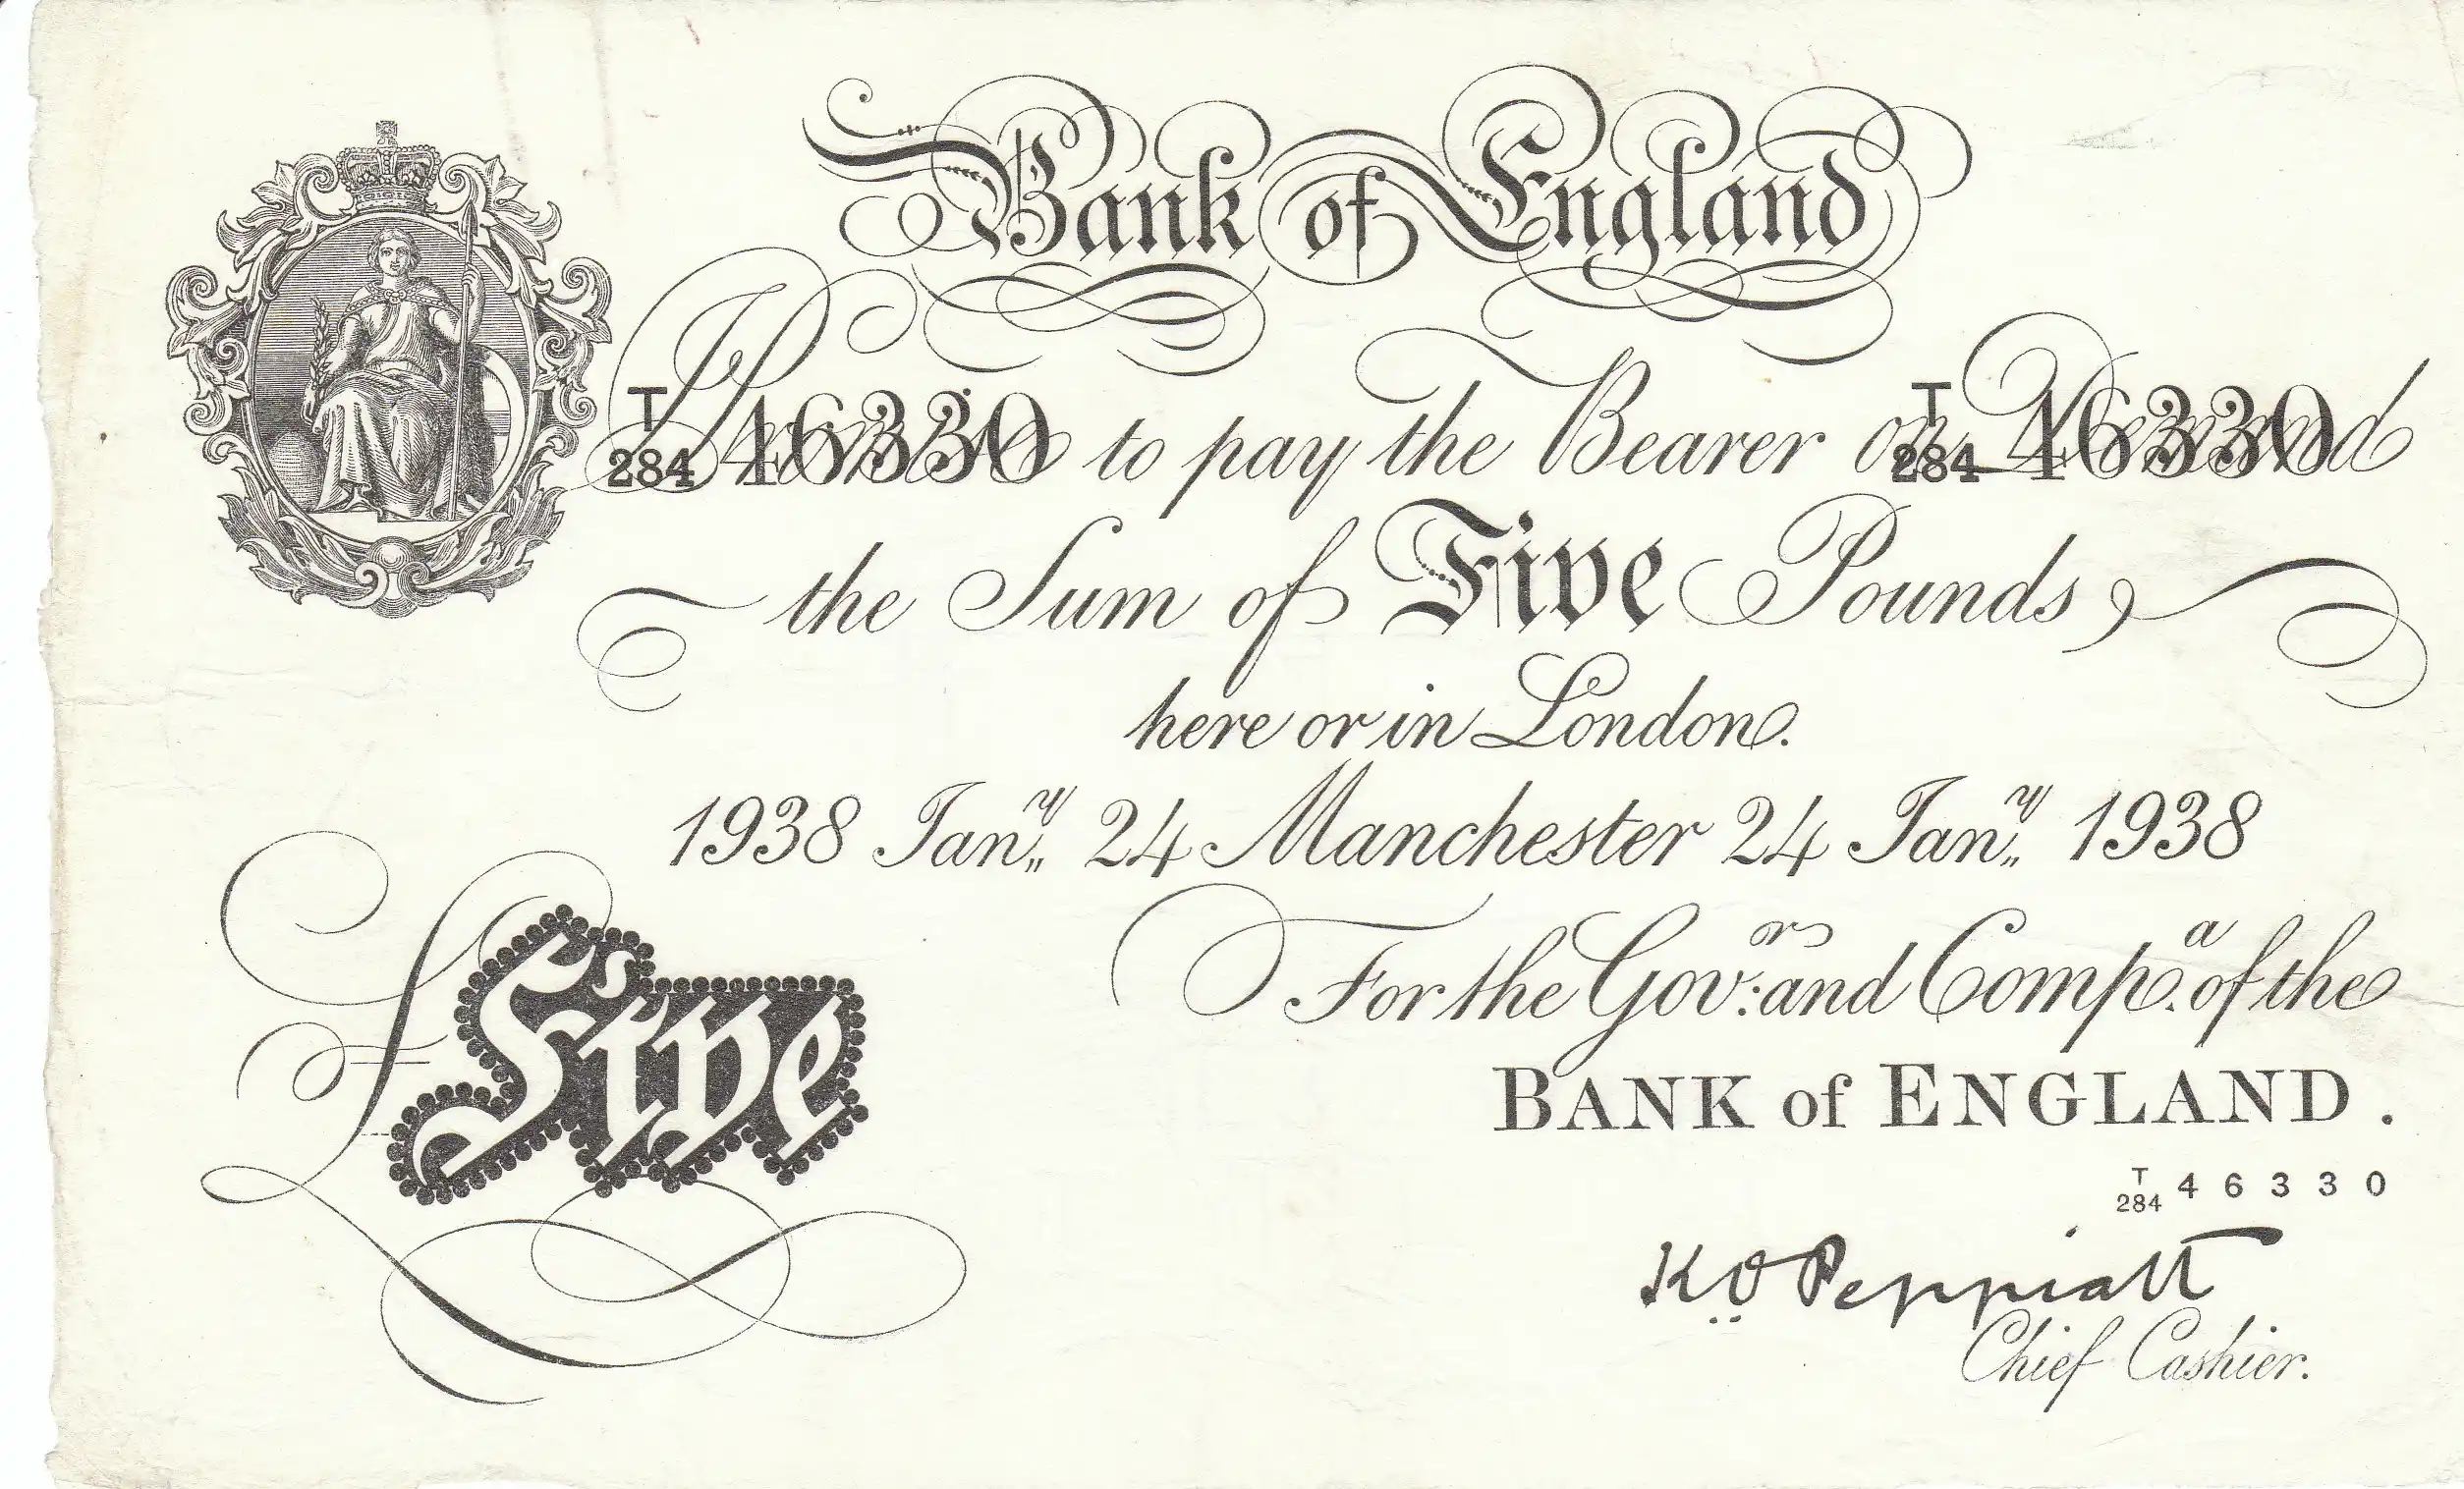 Bank of England
T/284 46330 T/284 46330
I Promise to pay the Bearer on Demand
the Sum of Five Pounds,
here or in London.
1938 Jan.y 24 Manchester 24 Jan.y 1938
For the Gov:or and Comp.a of the
BANK of ENGLAND.
£ Five
T/284 46330
K.O. Peppiatt
Chief Cashier.